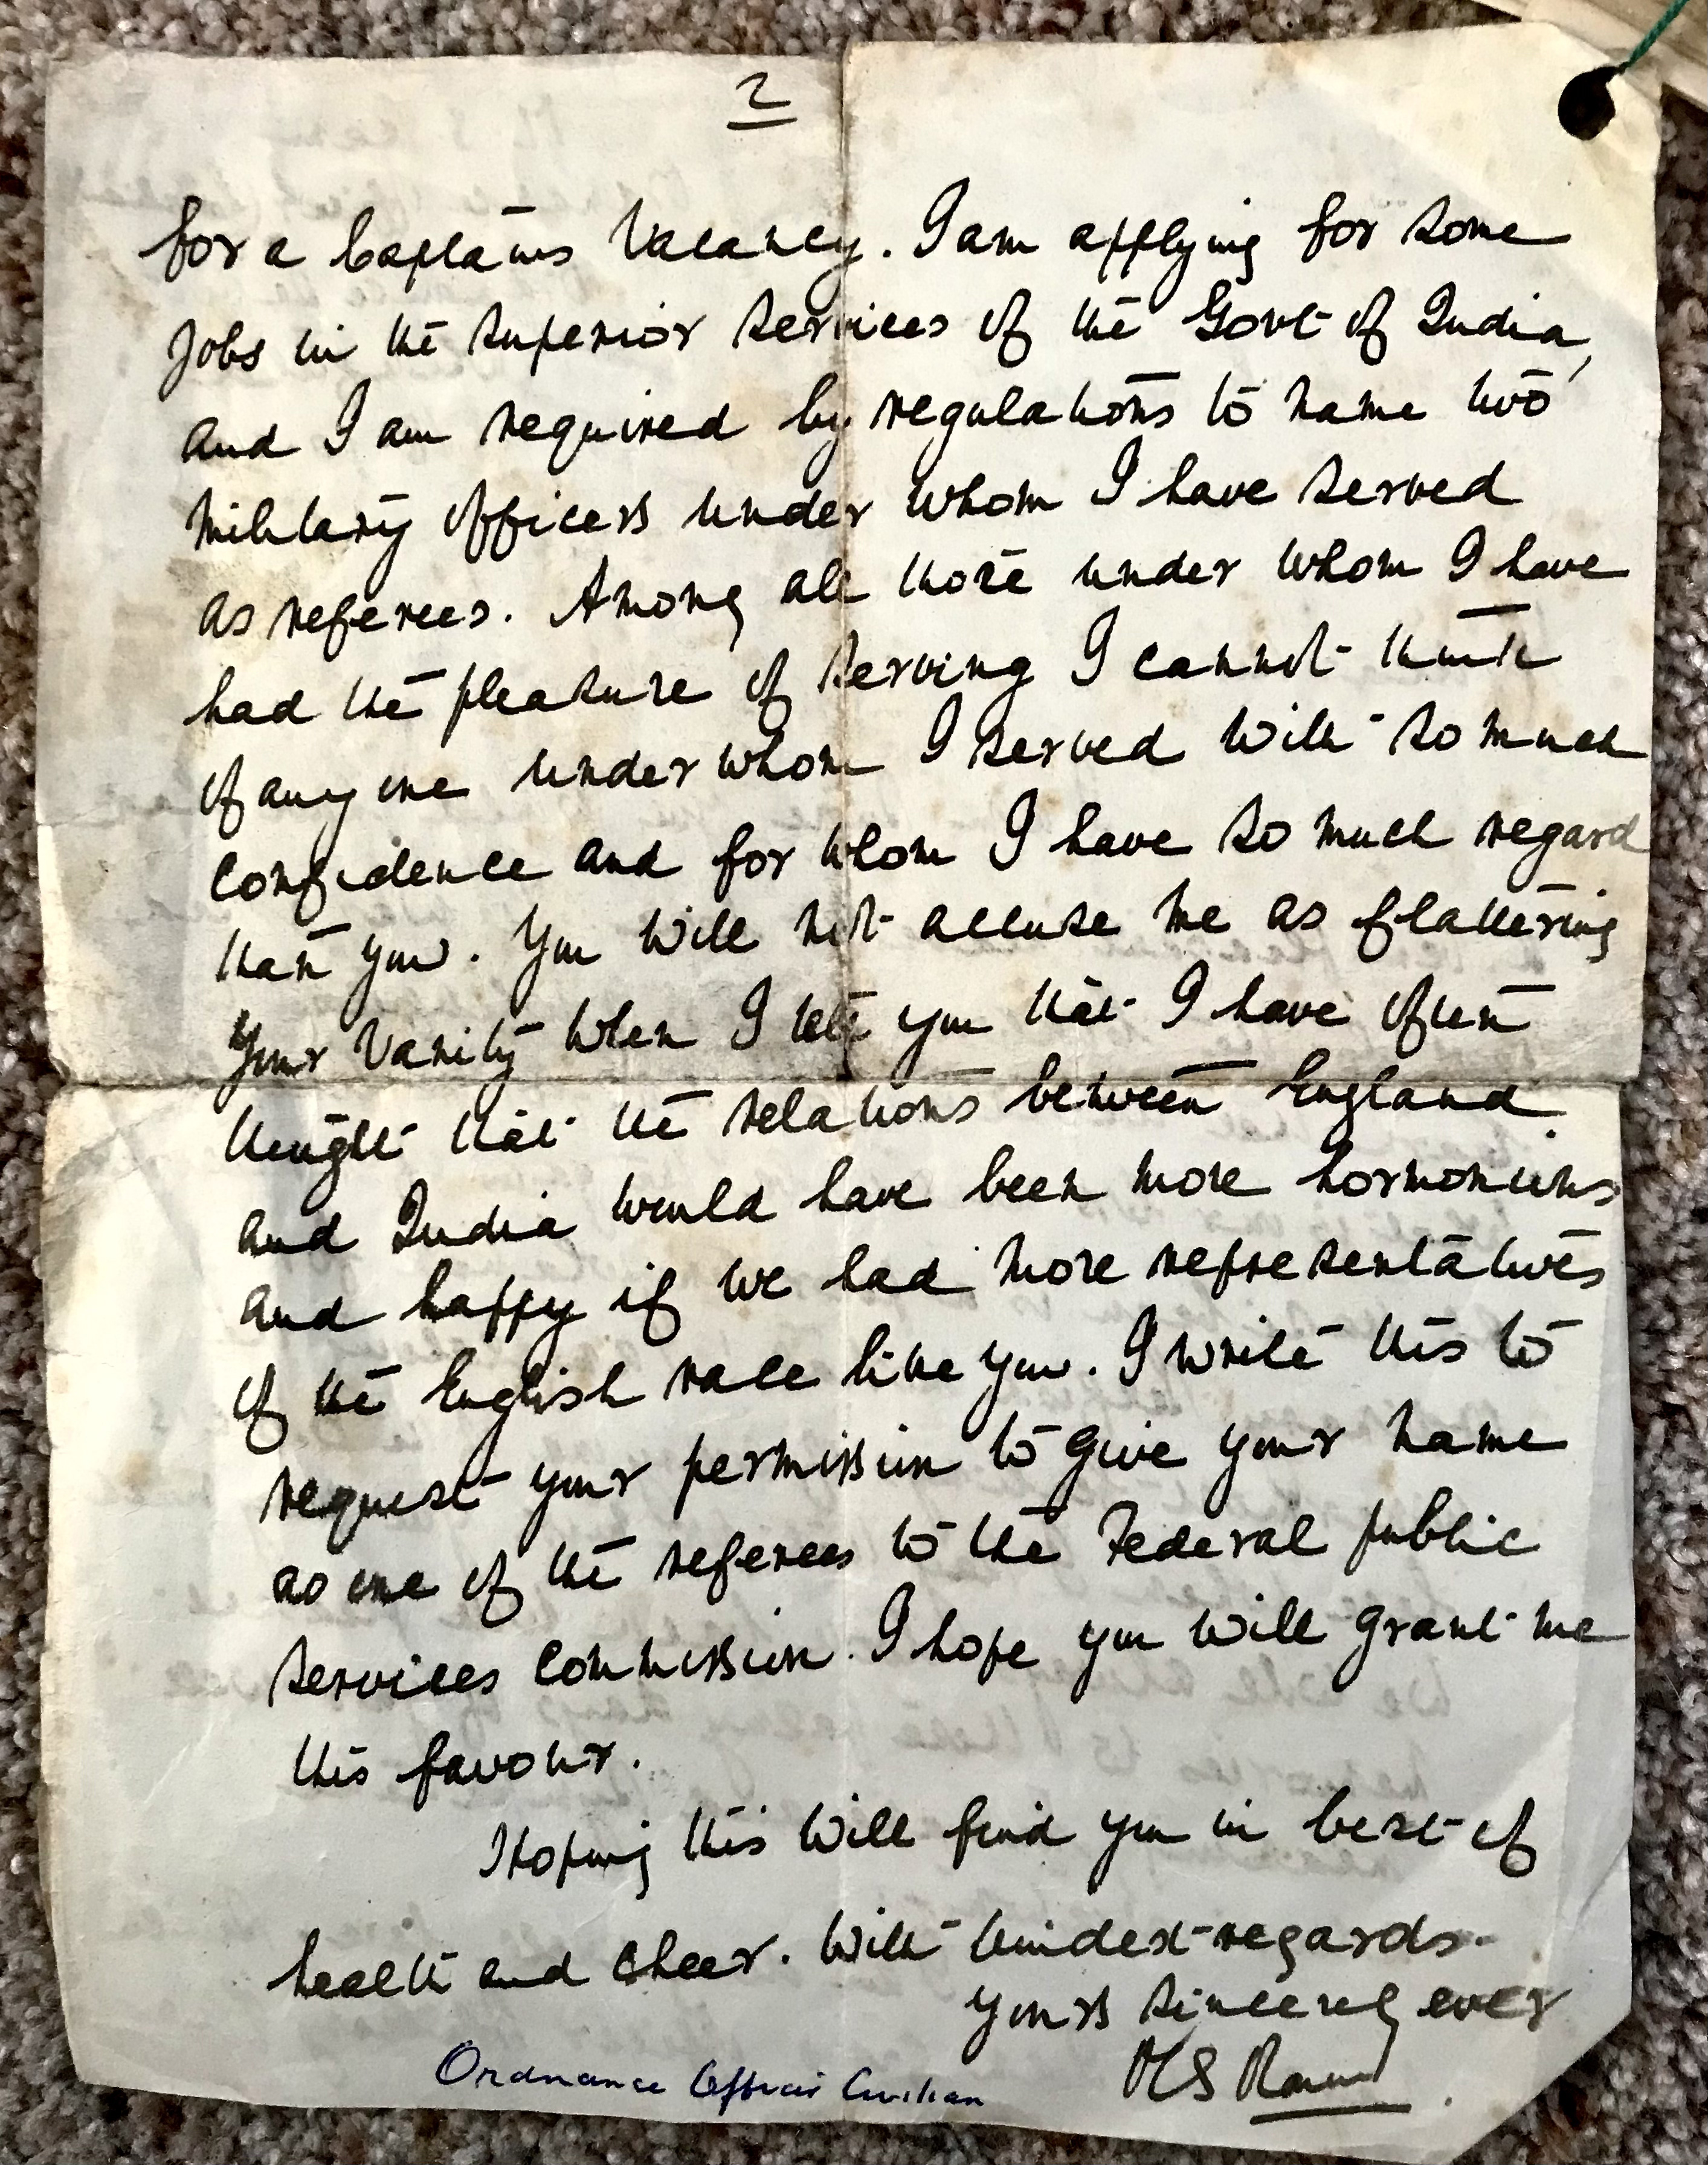 2
for a Captains Vacancy. I am applying for some
Jobs in the superior services of the Govt of India,
and I am required by regulations to name two
military officers under whom I have served
as referees. Among all those under whom I have
had the pleasure of serving I cannot think
of any one under whom I served with so much
confidence and for whom I have so much regard
than you. You will not accuse me as flattering
your vanity when I tell you that I have often
thought that the relations between England
and India would have been more hormonious
and happy if we had more representatives
of the English race like you. I write this to
request your permission to give your name
as one of the referees to the Federal public
services commission. I hope you will grant me
this favour.
Hoping this will find you in best of
health and cheer. With kindest regards.
yours sincerely ever
Ordnance Officer Civilian